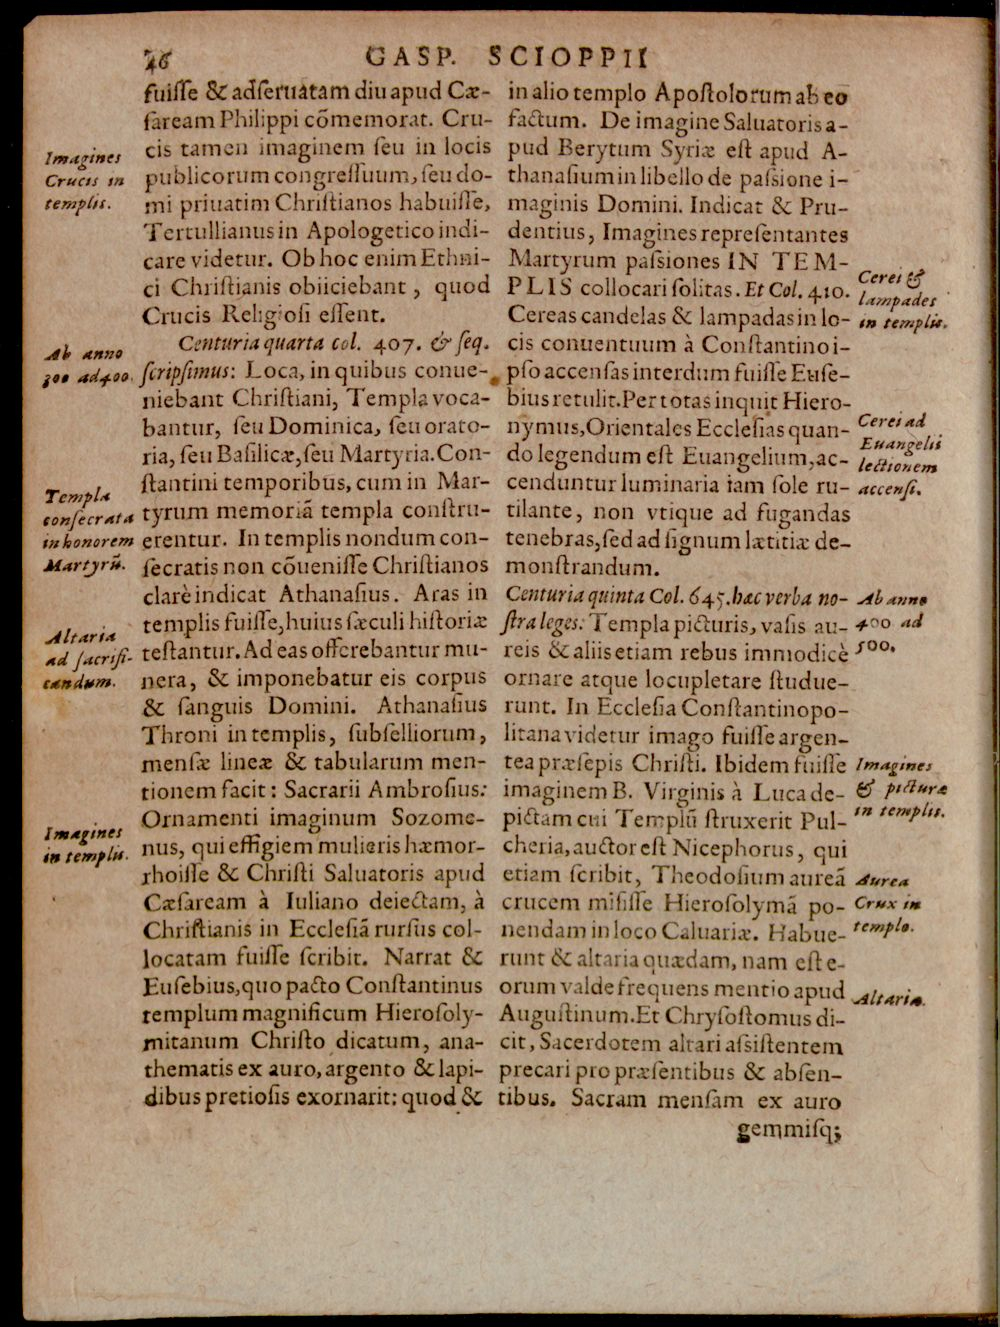 46
GASP. SCIOPPII
fuiſſe & adſeruatam diu apud Cæ-
ſaream Philippi cõmemorat. Cru-
cis tamen imaginem ſeu in locis
publicorum congreſſuum, ſeu do-
mi priuatim Chriſtianos habuiſſe,
Tertullianus in Apologetico indi-
care videtur. Ob hoc enim Ethni-
ci Chriſtianis obiiciebant, quod
Crucis Religioſi eſſent.
Centuria quarta col. 407. & ſeq.
ſcripſimus: Loca, in quibus conue-
niebant Chriſtiani, Templa voca-
bantur, ſeu Dominica, ſeu orato-
ria, ſeu Baſilicæ, ſeu Martyria. Con-
ſtantini temporibus, cum in Mar-
tyrum memoriã templa conſtru-
erentur. In templis nondum con-
ſecratis non cõueniſſe Chriſtianos
clarè indicat Athanaſius. Aras in
templis fuiſſe, huius ſæculi hiſtoriæ
teſtantur. Ad eas offerebantur mu-
nera, & imponebatur eis corpus
& ſanguis Domini. Athanaſius
Throni in templis, ſubſelliorum,
menſæ lineæ & tabularum men-
tionem facit: Sacrarii Ambroſius:
Ornamenti imaginum Sozome-
nus, qui effigiem mulieris hæmor-
rhoiſſe & Chriſti Saluatoris apud
Cæſaream à Iuliano deiectam, à
Chriſtianis in Eccleſiã rurſus col-
locatam fuiſſe ſcribit. Narrat &
Euſebius, quo pacto Conſtantinus
templum magnificum Hieroſoly-
mitanum Chriſto dicatum, ana-
thematis ex auro, argento & lapi-
dibus pretioſis exornarit: quod &
Imagines
Crucis in
templis.
Ab anno
300 ad 400.
Templa
conſecrata
in honorem
Martyrũ.
Altaria
ad ſacrifi-
candum.
Imagines
in templis.
in alio templo Apoſtolorum ab eo
factum. De imagine Saluatoris a-
pud Berytum Syriæ eſt apud A-
thanaſium in libello de paſsione i-
maginis Domini. Indicat & Pru-
dentius, Imagines repreſentantes
Martyrum paſsiones IN TEM-
PLIS collocari ſolitas. Et Col. 410.
Cereas candelas & lampadas in lo-
cis conuentuum à Conſtantino i-
pſo accenſas interdum fuiſſe Euſe-
bius retulit. Per totas inquit Hiero-
nymus, Orientales Eccleſias quan-
do legendum eſt Euangelium, ac-
cenduntur luminaria iam ſole ru-
tilante, non vtique ad fugandas
tenebras, ſed ad ſignum lætitiæ de-
monſtrandum.
Centuria quinta Col. 645. hæc verba no-
ſtra leges: Templa picturis, vaſis au-
reis & aliis etiam rebus immodicè
ornare atque locupletare ſtudue-
runt. In Eccleſia Conſtantinopo-
litana videtur imago fuiſſe argen-
tea præſepis Chriſti. Ibidem fuiſſe
imaginem B. Virginis à Luca de-
pictam cui Templũ ſtruxerit Pul-
cheria, auctor eſt Nicephorus, qui
etiam ſcribit, Theodoſium aureã
crucem miſiſſe Hieroſolymã po-
nendam in loco Caluariæ. Habue-
runt & altaria quædam, nam eſt e-
orum valde frequens mentio apud
Auguſtinum. Et Chryſoſtomus di-
cit, Sacerdotem altari aſsiſtentem
precari pro præſentibus & abſen-
tibus. Sacram menſam ex auro
gemmiſq;
Cerei &
lampades
in templis.
Cerei ad
Euangelii
lectionem
accenſi.
Ab anno
400 ad
500.
Imagines
& picturæ
in templis.
Aurea
Crux in
templo.
Altaria.